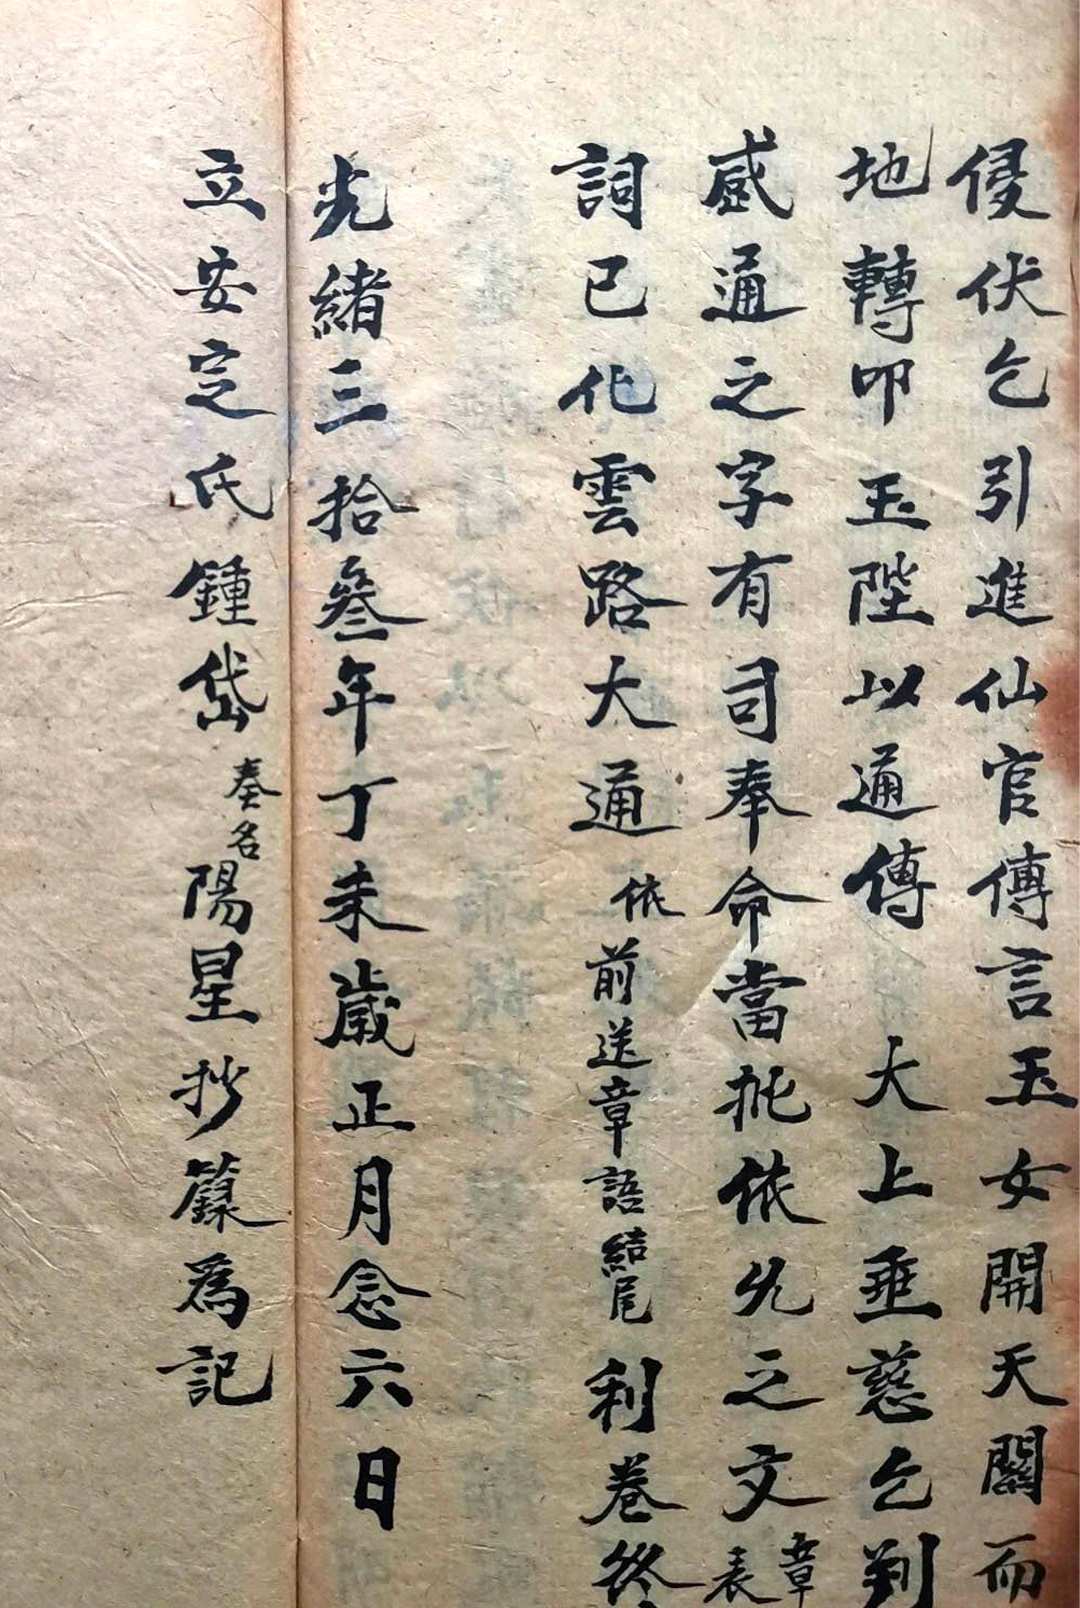 侵伏乞引進仙官傳言玉女開天關而
地轉叩玉陛以通傳大上垂慈乞判
感通之字有司奉命當批依允之文章表
詞已化雲路大通依前送章語結尾利卷終
光緒三拾叄年丁未歲正月念六日
立安定氏鍾岱奏名陽星抄籙為記